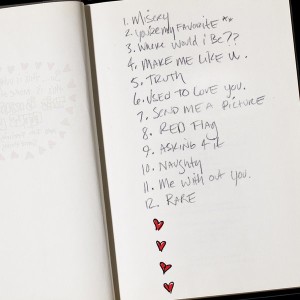 1. Misery
2. you're my FAVORITE **
3. Where would i Be??
4. MAKE ME LIKE U.
5. TRUTH
6. USED TO LOVE YOU.
7. SEND ME A PICTURE
8. RED FlAg
9. ASKING 4 it
10. NAughty
11. Me with out you.
12. RARE